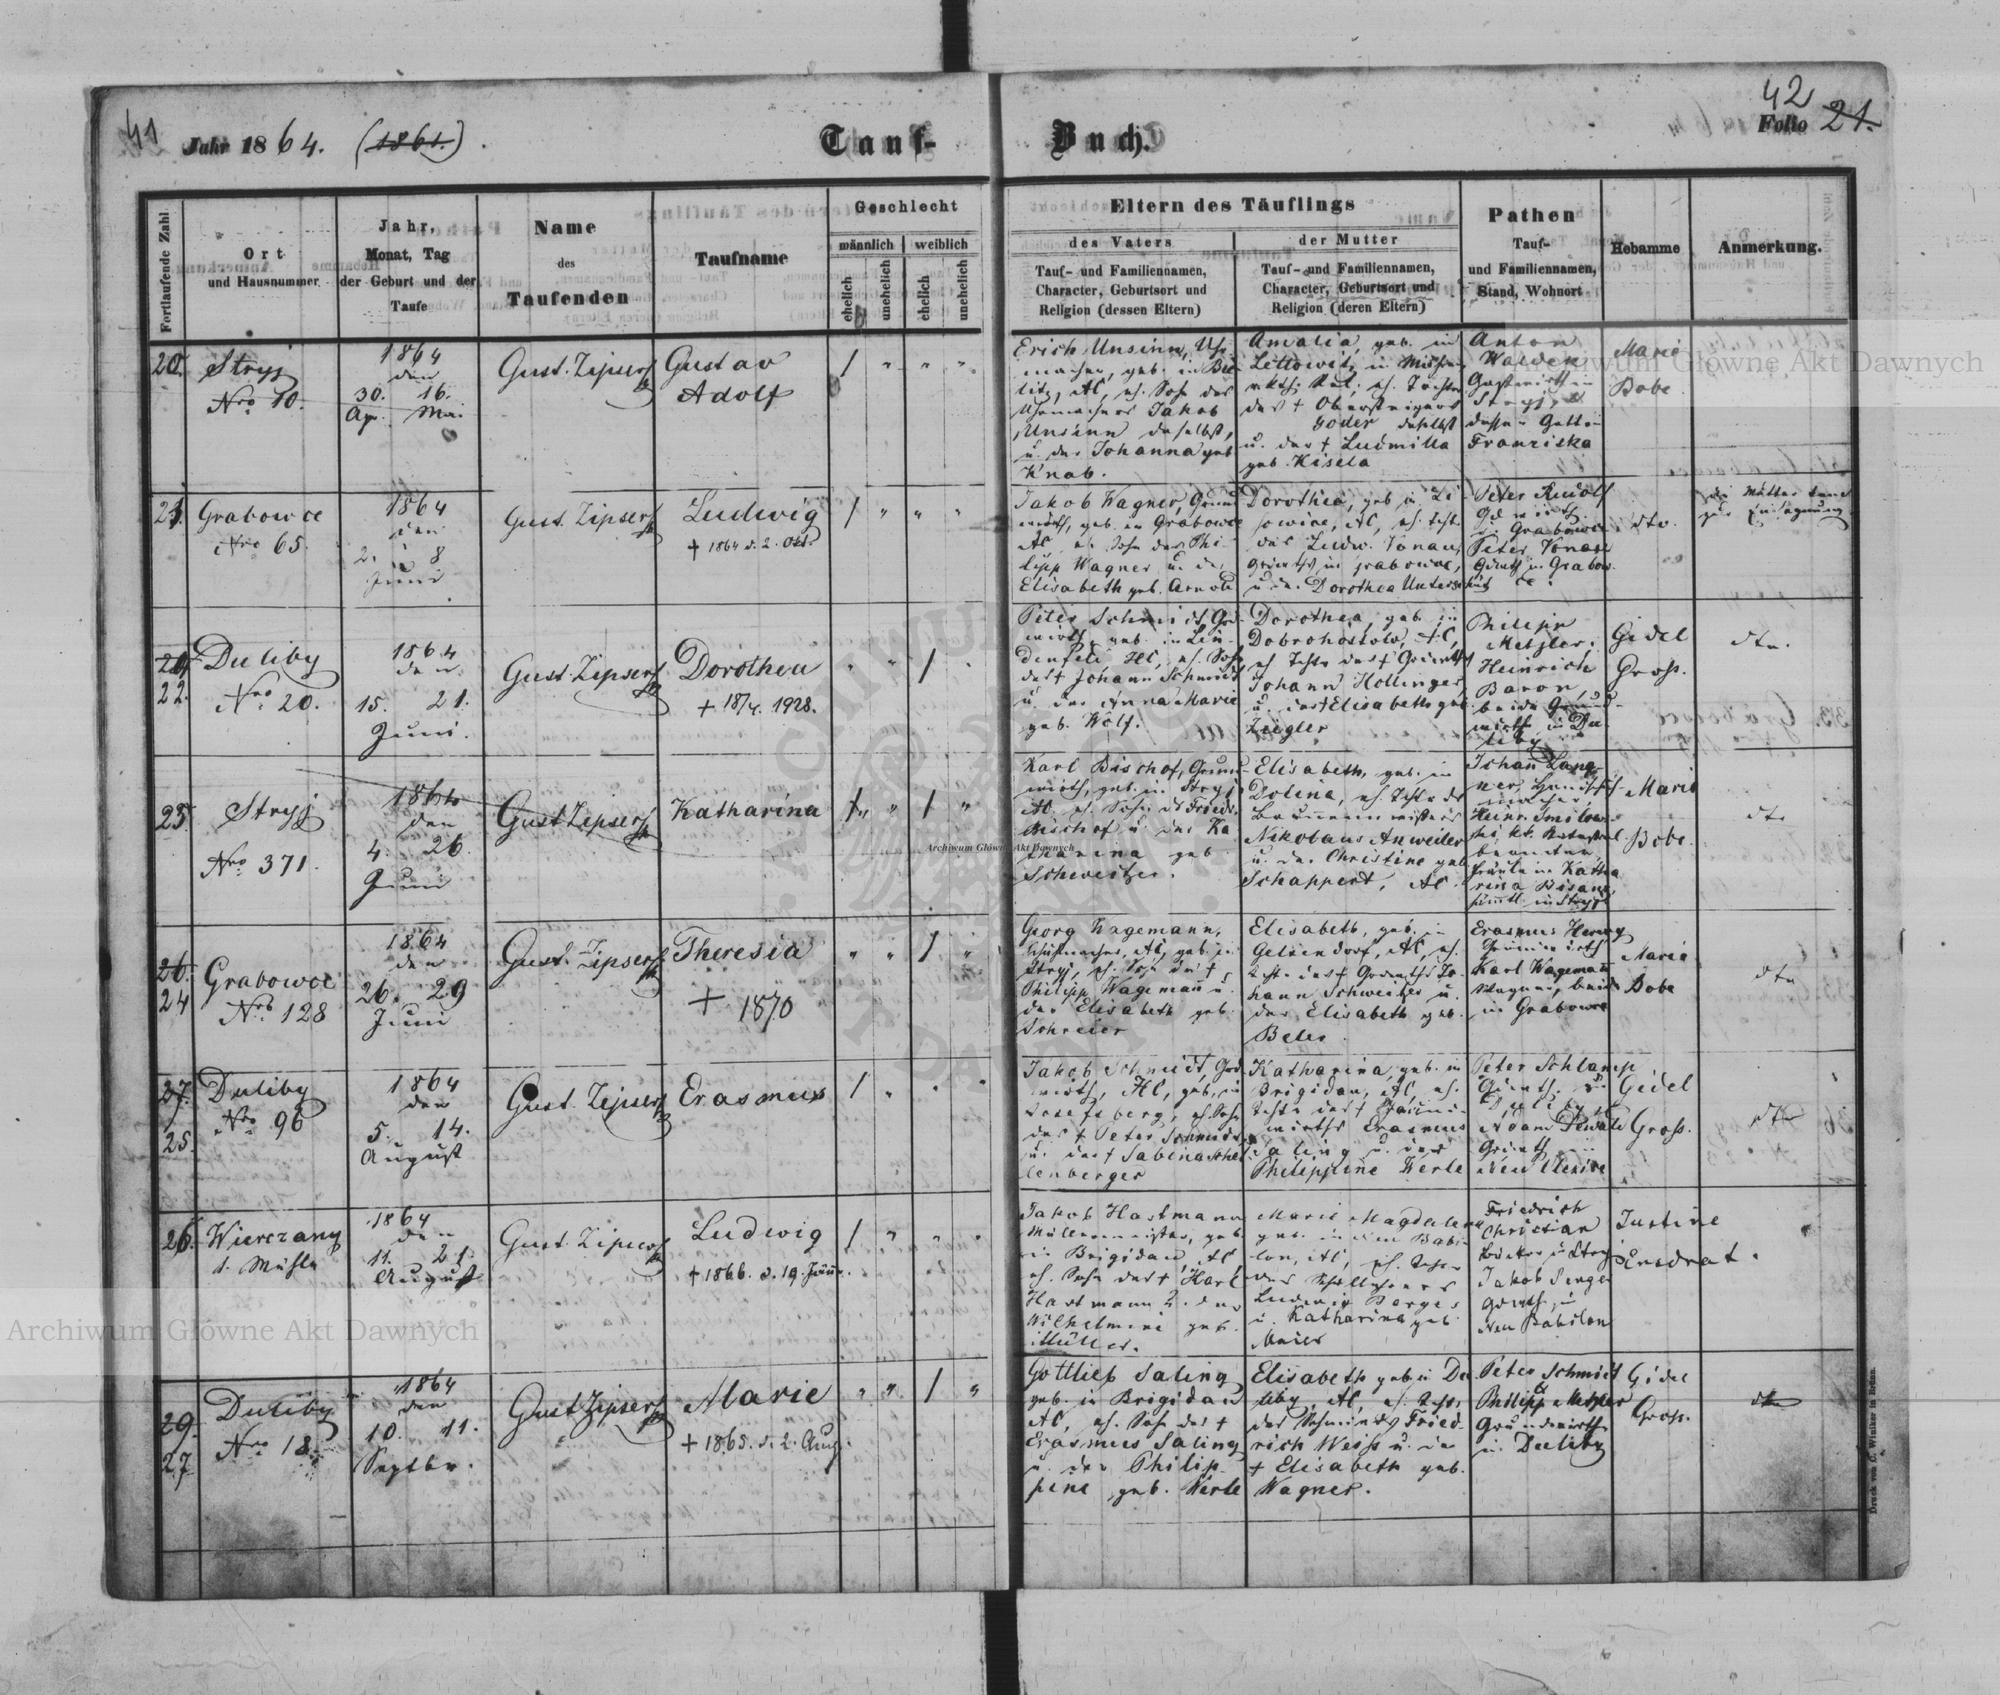 41
Jahr 1864. (1861.)
Tauf-Buch.
42
Folio 21.
Fortlaufende Zahl.
Ort
und Hausnummer
Jahr,
Monat, Tag
der Geburt und der
Taufe
Name
des
Taufenden
Taufname
Geschlecht
männlich
weiblich
ehelich
unehelich
ehelich
unehelich
Eltern des Täuflings
des Vaters
Tauf- und Familiennamen,
Character, Geburtsort und
Religion (dessen Eltern)
der Mutter
Tauf- und Familiennamen,
Character, Geburtsort und
Religion (deren Eltern)
Pathen
Tauf-
und Familiennamen,
Stand, Wohnort
Hebamme
Anmerkung.
20.
Stryj
Nro 10.
1864
den
30. 16.
Apr. Mai
Gust. Zipser
Gustav
Adolf
/ " " "
Erich Unsinn, Uhr
macher, geb. in Bie
litz, AC, eh. Sohn des
Uhrmachers Jakob
Unsinn daselbst,
u. der Johanna geb
Knab.
Amalia, geb. in
Lettowitz in Mähren
eh. Tochter
des † Obersteigers
Goder daselbst
u. der † Ludmilla
geb. Kisela
Anton
Walden
Gastwirth in
Stryj, u
dessen Gattin
Franziska
Marie
Bobe
21.
Grabowce
Nro 65.
1864
den
2. 8
Juni
Gust. Zipser
Ludwig
† 1864 d. 2. Okt.
/ " " "
Jakob Wagner, Grund
wirth, geb. in Grabowce
AC eh. Sohn des Phi-
lipp Wagner u. der
Elisabeth geb. Arnold
Dorothea, geb in Li
sowice, AC, eh. Tcht.
des Ludw. Konau,
Grdwths in Grabowce,
u. der Dorothea
Peter Rudolf
Grdwirth
in Grabowce
Peter Konau
Grdwth in Grabow
ce.
dto.
22.
Duliby
Nro 20.
1864
den
15. 21.
Juni.
Gust. Zipser
Dorothea
† 18/4. 1928.
" " / "
Peter Schmidt, Grd-
wirth, geb. in Lin-
denfeld, HC, eh. Sohn
des † Johann Schmidt
u. der Anna Marie
geb. Wolf.
Dorothea, geb. in
Dobrohostow, AC,
eh. Tchtr des † Grdwirths
Johann Hollinger,
u. der † Elisabeth geb
Ziegler
Philipp
Metzler,
Heinrich
Baron,
beide Grund-
wirthe in Du
liby
Gidel
Gross.
dto.
23.
Stryj
Nro 371.
1864
den
4. 26.
Juni
Gust Zipser
Katharina
" " / "
Karl Bischof, Grund-
wirth, geb. in Stryj
AC, eh. Sohn des Friedr.
Bischof u. der Ka
tharina geb
Schweitzer.
Elisabeth, geb. in
Dolina, eh. Tchtr des
Brunnenmeisters
Nikolaus Anweiler
u. der Christine geb
Schappert, AC
Johann Lang
ner, Handschuh-
macher,
Heinr.
beamter
Fräulein Katha
rina Bisanz,
sämtl. in Stryj
Marie
Bobe.
dto
26.
24
Grabowce
Nro 128
1864
den
26. 29
Juni
Gust. Zipser
Theresia
† 1870
" " / "
Georg Wagemann,
Schuhmacher, AC, geb. in
Stryj, eh. Sohn des †
Philipp Wagemann u.
der Elisabeth geb.
Schreier
Elisabeth, geb. in
Gelsendorf, AC, eh.
Tcht. des † Grdwths Jo-
hann Schweitzer u.
der Elisabeth geb.
Beler.
Erasmus Herwy
Grundwirth
Karl Wagemann
Wagner, beide
in Grabowce
Marie
Bobe
dto
27.
25.
Duliby
Nro 96
1864
den
5. 14.
August
Gust. Zipser
Erasmus
/ " " "
Jakob Schmidt, Grd
wirth, HC, geb. in
Josefsberg, eh. Sohn
des † Peter Schmidt
u. der † Sabina Schel
lenberger
Katharina geb. in
Brigidau, AC, eh.
Tchtr des † Grund-
wirths Erasmus
Saling u. der
Philippine Kerle
Peter Schlamp
Grdwth. in
Duliby
Adam Dewald
Grdwth in
Neu Olexice
Gidel
Gross.
dto
26.
Wierczany
d. Mühle
1864
den
11. 21.
August
Gust. Zipser
Ludwig
† 1866. d. 19. Jän.
/ " " "
Jakob Hartmann
Müllermeister, geb
in Brigidau, AC,
eh. Sohn des † Karl
Hartmann u. der
Wilhelmine geb.
Müller.
Marie Magdalena
geb. in Neu Babi
lon, AC, eh. Tochter
des Schullehrers
Ludwig Berges
u. Katharina geb
Maier
Friedrich
Christian
Bäcker in Stryj
Jakob Senger
Grdwth. in
Neu Babilon
Justine
29.
27
Duliby
Nro 18.
1864
den
10. 11.
Septbr.
Gust Zipser
Marie
† 1865. d. 2. Aug.
" " / "
Gottlieb Saling
geb. in Brigidau
AC, eh. Sohn des †
Erasmus Saling
u. der Philip-
pine geb. Kerle
Elisabeth geb in Du
liby, AC, eh. Tchtr.
des Schmieds Fried-
rich Weiss u. der
† Elisabeth geb.
Wagner.
Peter Schmidt
&
Philipp Metzler
Grundwirthe
in Duliby
Gidel
Gross.
dto
Druck von C. Winiker in Brünn.
Archiwum Główne Akt Dawnych
Archiwum Główne Akt Dawnych
Archiwum Główne Akt Dawnych